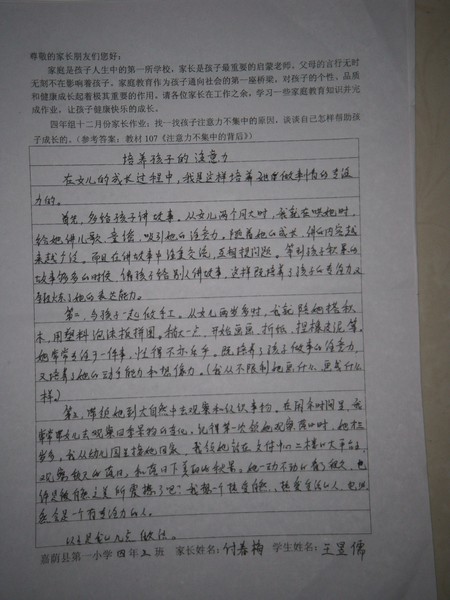 尊敬的家长朋友们您好:
家庭是孩子人生中的第一所学校,家长是孩子最重要的启蒙老师。父母的言行无时
无刻不在影响着孩子。家庭教育作为孩子通向社会的第一座桥梁,对孩子的个性、品质
和健康成长起着极其重要的作用。请各位家长在工作之余,学习一些家庭教育知识并完
成作业。让孩子健康快乐的成长。
四年组十二月份家长作业:找一找孩子注意力不集中的原因。谈谈自己怎样帮助孩
子成长的。(参考答案:教材107《注意力不集中的背后》)
培养孩子的注意力
在女儿的成长过程中,我是这样培养她做事情的专注
力的。
首先,多给孩子讲故事。从女儿两个月大时,我就在哄她时,
给她讲儿歌、童话,吸引她的注意力。随着她的成长,讲的内容越
来越广泛。而且在讲故事中注重交流,互相提问题。等到孩子积累的
故事够多的时候,倩孩子给别人讲故事,这样既培养了孩子的专注力又
锻炼了她的表达能力。
第二,与孩子一起做手工。从女儿两岁多时,我就陪她搭积
木,用塑料泡沫板拼图。稍大一点,开始画画、折纸、捏橡皮泥等。
她常常专注于一件事,忙得不亦乐乎,既培养了孩子做事的注意力,
又培养了她的动手能力和想像力。(我从不限制她画什么,画成什么
样。)
第三,带领她到大自然中去观察和认识事物。在闲余时间里,我
常带女儿去观察四季景物的变化。记得第一次领她观察落日时,她才三
岁多。我从幼儿园接她回家,我领她站在文体中心二楼的大平台上,
观察秋天的落日,和落日下美丽的秋景。她一动不动的看了很久,也
许是被自然之美所震撼了吧?我想一个热爱自然,热爱生活的人,也
应会是一个有专注力的人。
以上是我的几点做法。
嘉荫县第一小学四年二班 家长姓名:付春梅 学生姓名:王昱儒